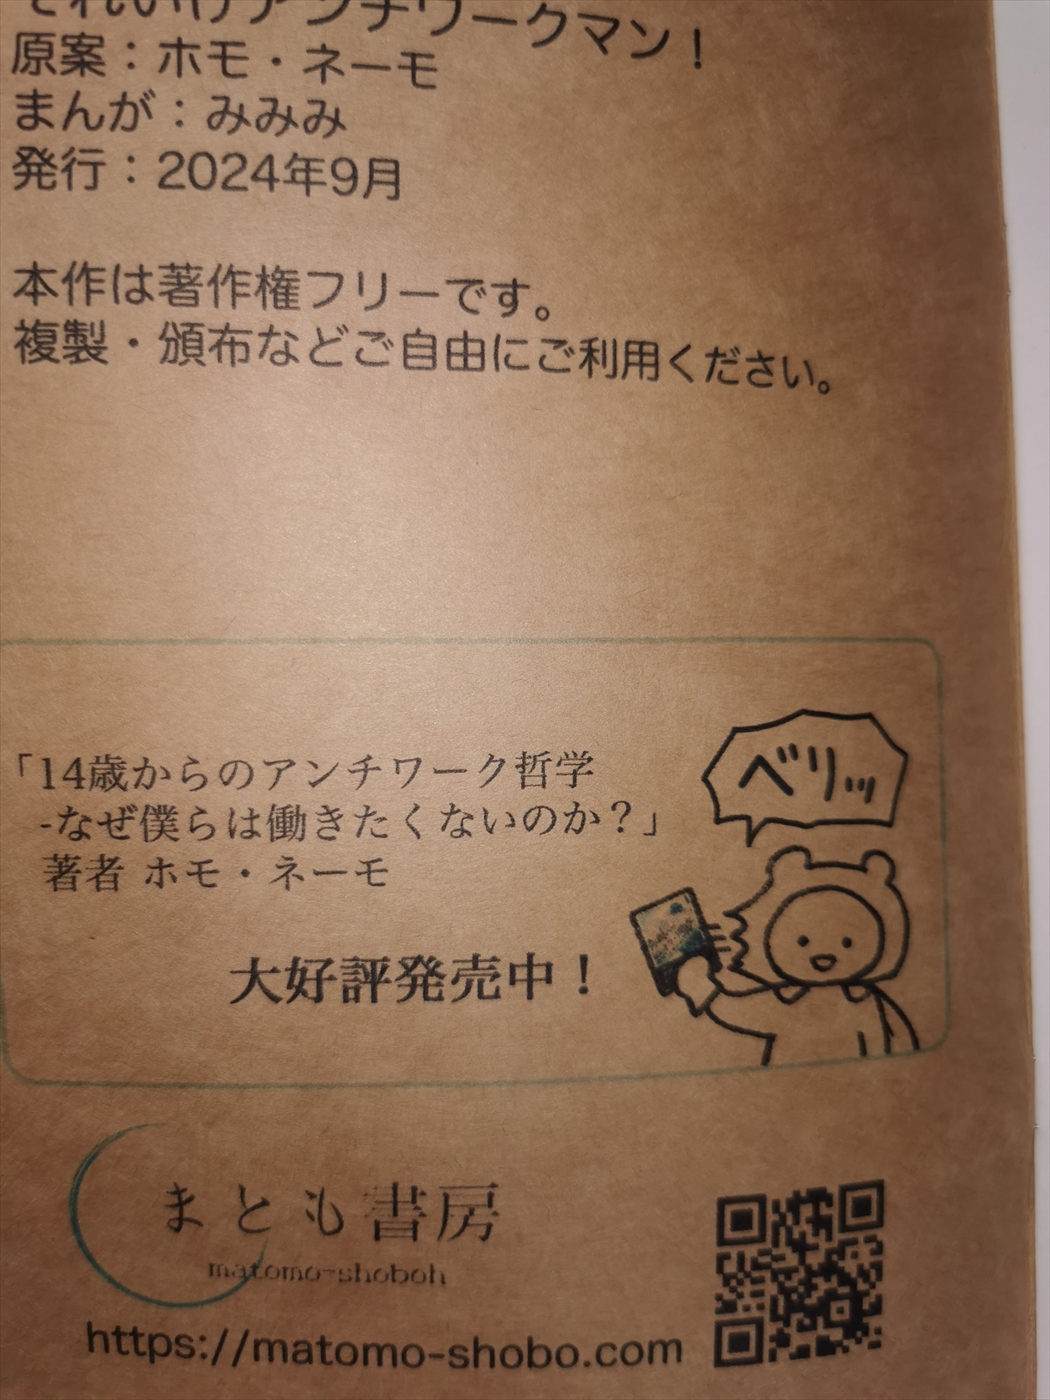 それいけアンチワークマン！
原案：ホモ・ネーモ
まんが：みみみ
発行：2024年9月
本作は著作権フリーです。
複製・頒布などご自由にご利用ください。
「14歳からのアンチワーク哲学
-なぜ僕らは働きたくないのか？」
著者 ホモ・ネーモ
大好評発売中！
ベリッ
まとも書房
matomo-shoboh
https://matomo-shobo.com